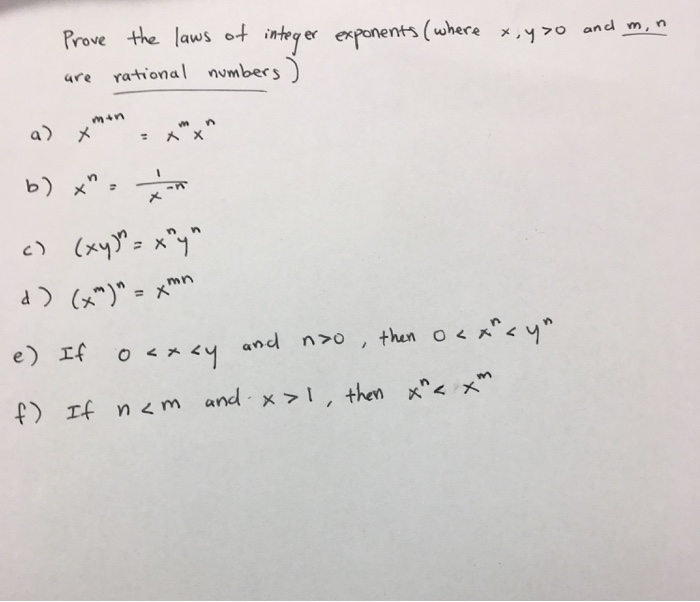 Prove the laws of integer exponents (where x, y > 0 and m, n
are rational numbers)
a) x^{m+n} = x^m x^n
b) x^n = \frac{1}{x^{-n}}
c) (xy)^n = x^n y^n
d) (x^m)^n = x^{mn}
e) If 0 < x < y and n > 0, then 0 < x^n < y^n
f) If n < m and x > 1, then x^n < x^m